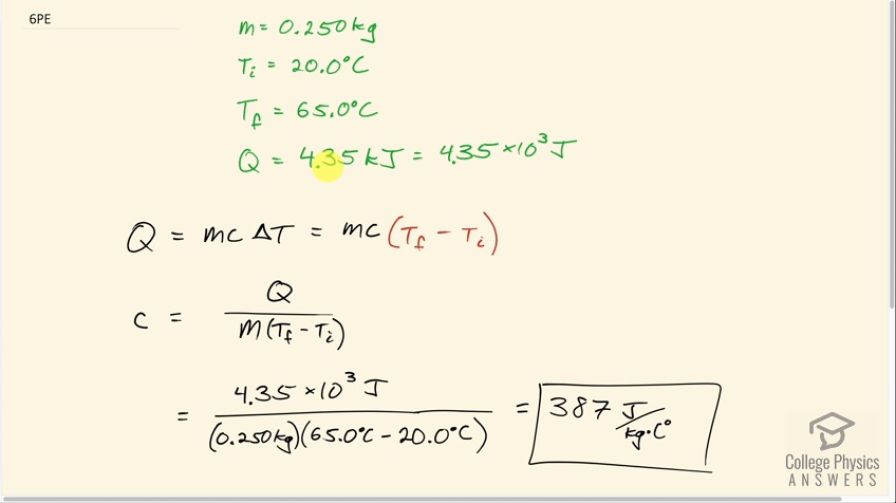 6PE
m = 0.250 kg
Tᵢ = 20.0°C
T_f = 65.0°C
Q = 4.35 kJ = 4.35 × 10³ J
Q = mc ΔT = mc (T_f − Tᵢ)
c = Q / m(T_f − Tᵢ)
= 4.35 × 10³ J / (0.250 kg)(65.0°C − 20.0°C) = 387 J/kg·C°
College Physics
ANSWERS